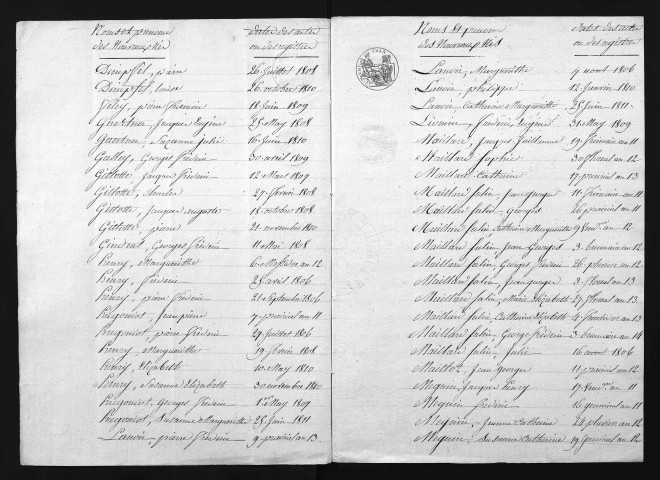 Noms et prenoms
des Nouveaux Nés
dates des actes
ou des registres
Dimpffel, pierre 26 Juillet 1808
Dimpffel, louise 26 octobre 1810
pierre 18 Juin 1809
Jacques Eugène 25 May 1808
Suzanne Julie 16 Juin 1810
Gattey, Georges Frédéric 30 avril 1809
Gillotte, Jacques Frédéric 12 Mars 1809
Gillotte, Charles 27 février 1808
Gillotte, Jacques auguste 18 octobre 1808
Gillotte, pierre 21 novembre 1810
Georges Frédéric 11 Mai 1808
henry, Marguerithe 6 Messidor an 12
henry, Frédéric 25 avril 1806
henry, pierre Frédéric 21 Septembre 1806
hugoniot, Jean pierre 7 prairial an 11
hugoniot, pierre Frédéric 29 Juillet 1806
henry, Marguerithe 19 février 1808
henry, Elizabeth 10 May 1810
henry, Suzanne Elizabeth 30 novembre 1810
hugoniot, Georges Frédéric 1er May 1809
hugoniot, Suzanne Marguerithe 25 Juin 1811
pierre Frédéric 9 prairial an 13
Noms Et prenoms
des Nouveaux Nés
dates des actes
ou des registres
Marguerithe 7 aout 1806
philippe 12 Janvier 1810
Catherine Marguerithe 25 Juin 1811
Frédéric Eugène 31 May 1809
Maillard, Jacques Guillaume 19 frimaire an 11
Maillard Sophie 30 floreal an 12
Maillard Catherine 17 prairial an 13
Maillard Salin, Jean george 11 frimaire an 11
Maillard Salin, Georges 26 prairial an 11
Maillard Salin, Catherine Marguerithe an 12
Maillard Salin, Jean Georges 3 brumaire an 12
Maillard Salin, Georges Frédéric 26 pluviose an 12
Maillard Salin, Jean george 3 floreal an 13
Maillard Salin, Marie Elizabeth 29 floreal an 13
Maillard Salin, Catherine Elizabeth an 13
Maillard Salin, George Frédéric 3 brumaire an 14
Maillard Salin, Julie 16 aout 1806
Jean george 11 prairial an 12
Meguin, Jacques henry an 11
Meguin Frédéric 16 germinal an 11
Meguin, Jeanne Catherine 24 pluviose an 12
Meguin, Suzanne Catherine 19 germinal an 12